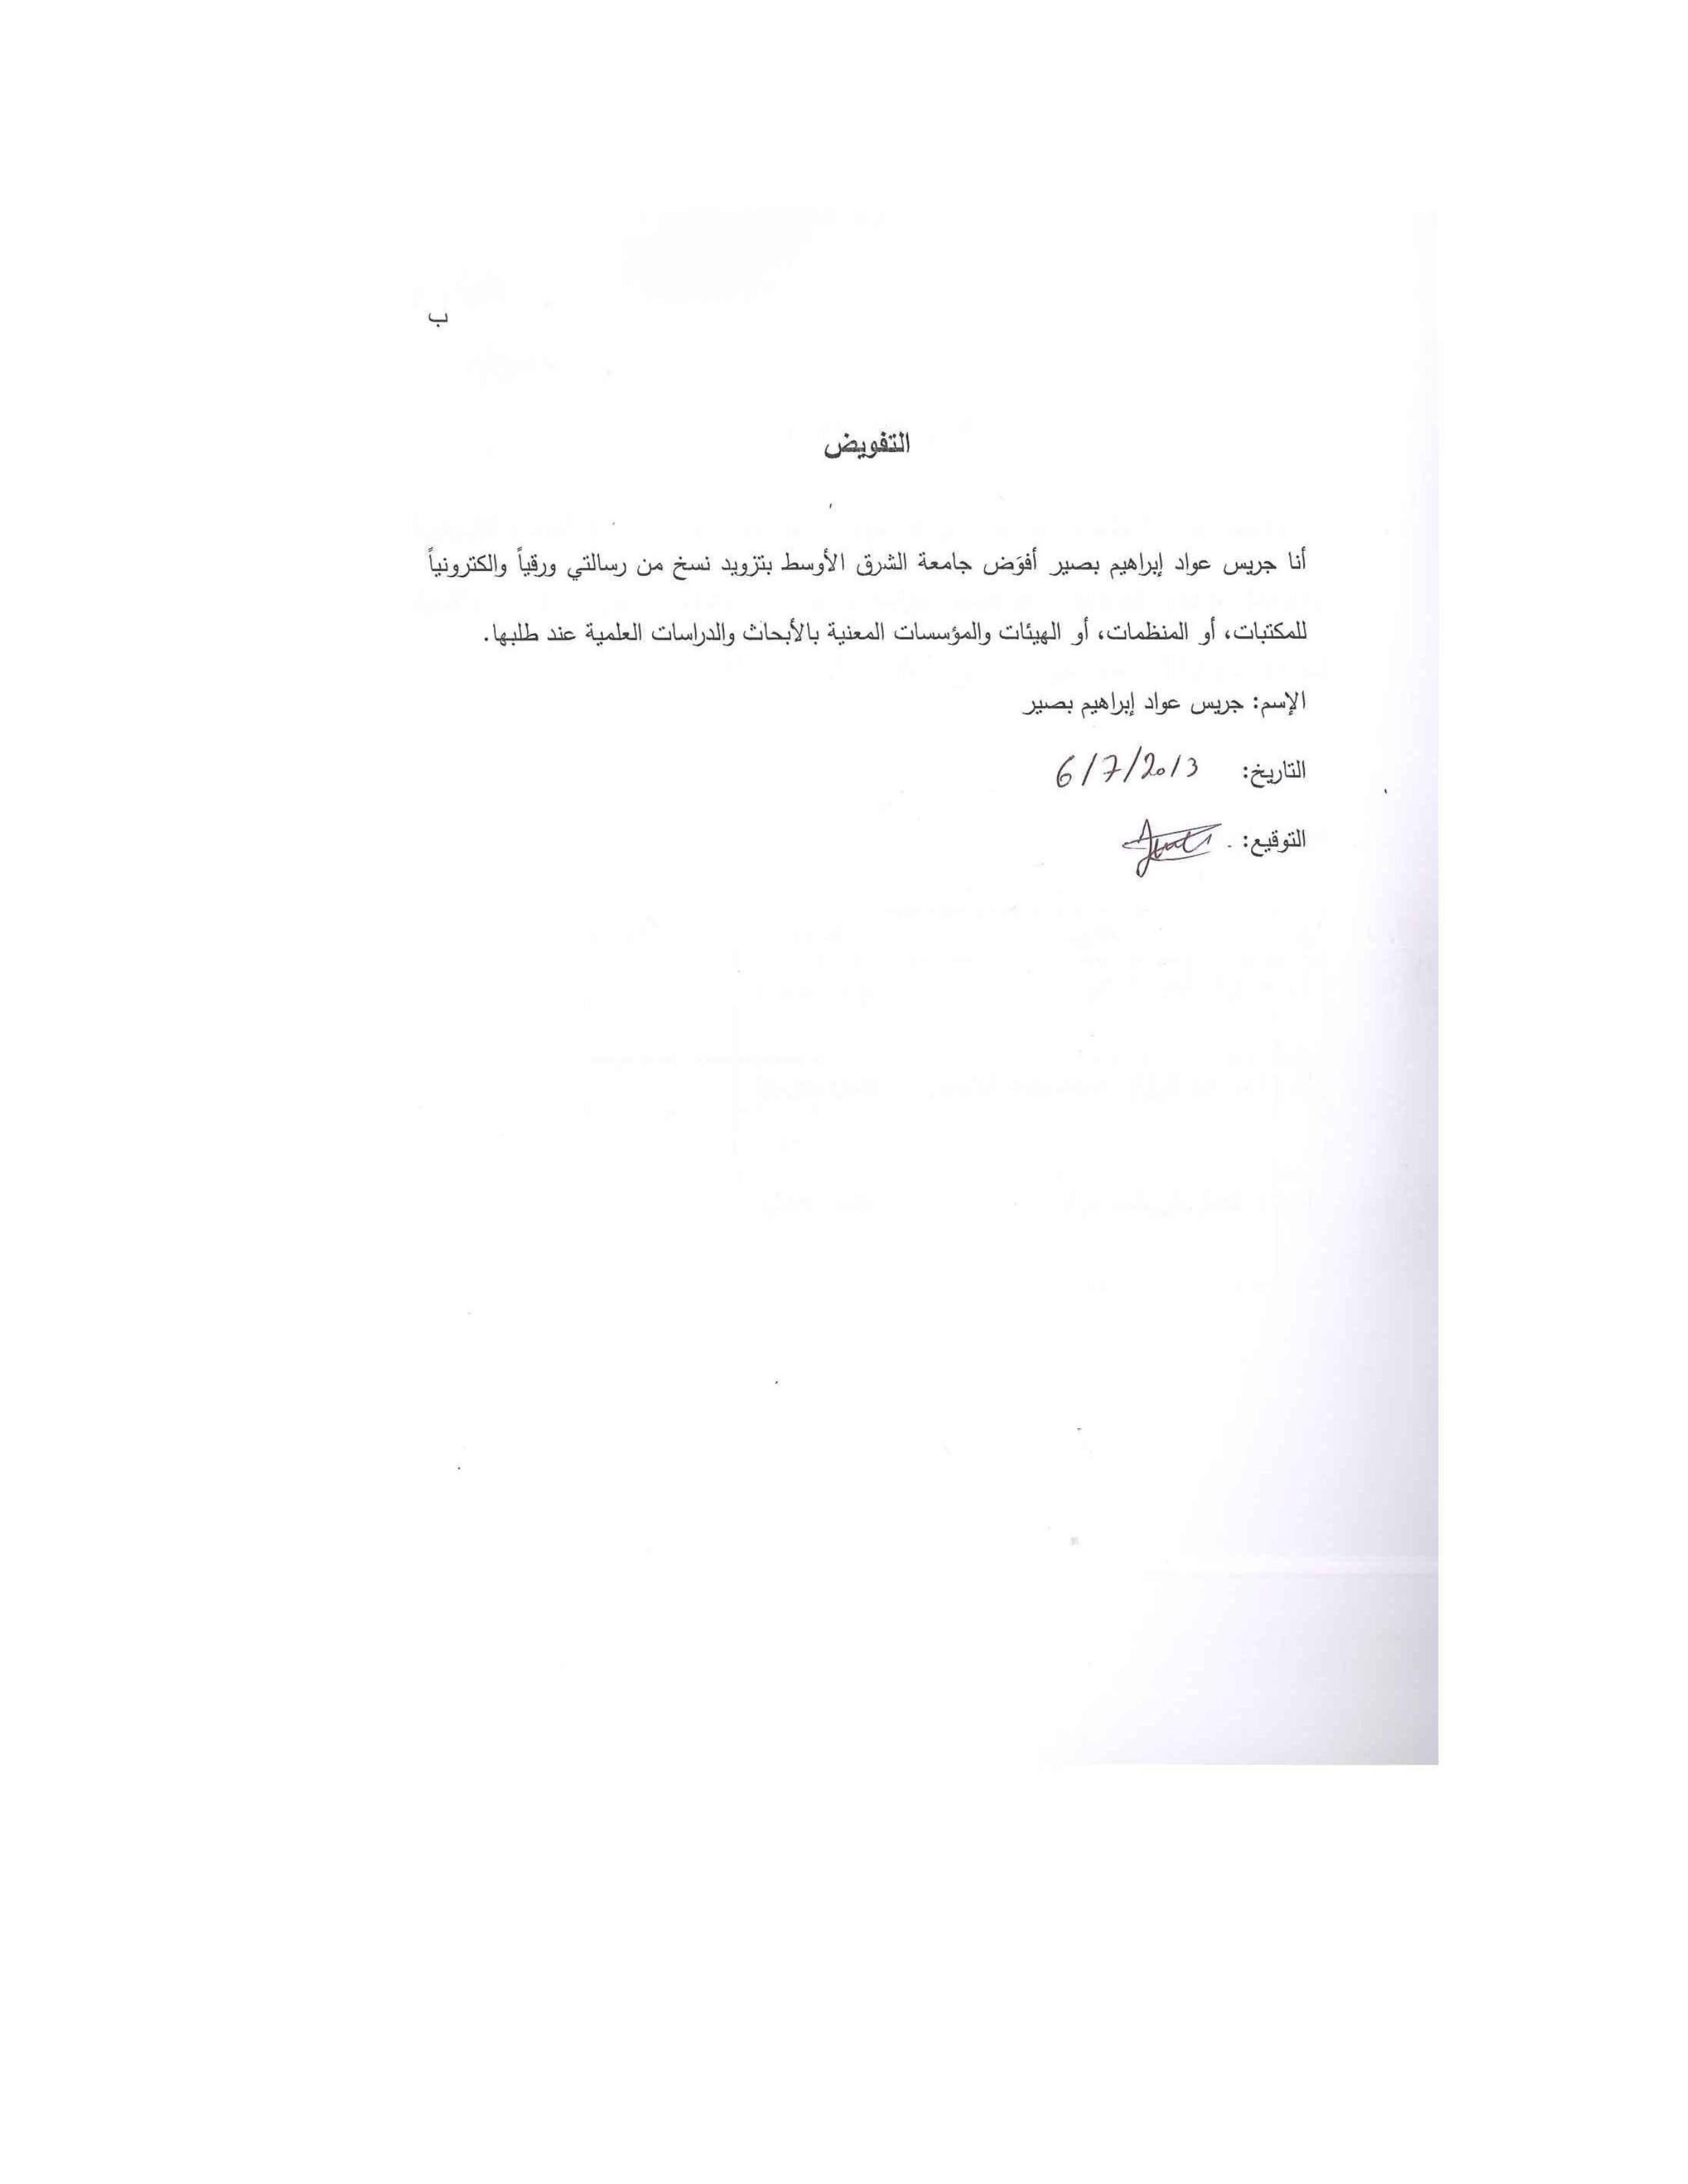 ب
التفويض
أنا جريس عواد إبراهيم بصير أفوَض جامعة الشرق الأوسط بتزويد نسخ من رسالتي ورقياً والكترونياً
للمكتبات، أو المنظمات، أو الهيئات والمؤسسات المعنية بالأبحاث والدراسات العلمية عند طلبها.
الإسم: جريس عواد إبراهيم بصير
التاريخ: 6/7/2013
التوقيع: